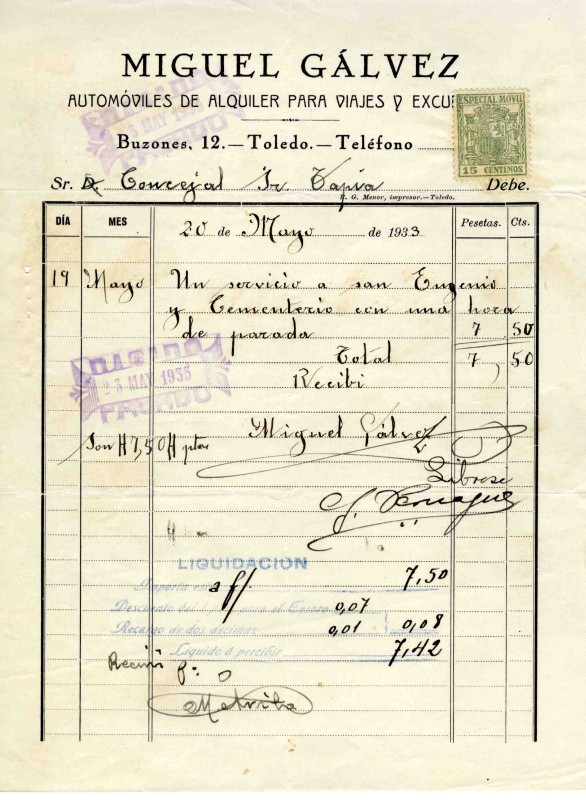 MIGUEL GÁLVEZ
AUTOMÓVILES DE ALQUILER PARA VIAJES Y EXCU
ESPECIAL MOVIL
15 CENTIMOS
Buzones, 12.—Toledo.—Teléfono
Sr. D. Concejal Sr. Tapia Debe.
R. G. Menor, impresor.—Toledo.
DÍA MES 20 de Mayo de 1933 Pesetas. Cts.
19 Mayo Un servicio a san Eugenio
y Cementerio con una hora
de parada 7 50
Total 7, 50
Recibi
PAGADO
23 MAY 1933
PAGADO
Miguel Gálvez
Son # 7,50 # ptas
Librese
LIQUIDACION
Importe 7,50
Descuento del para el Tesoro 0,07
Recargo de dos décimas 0,01 0,08
Líquido á percibir 7,42
Recibí